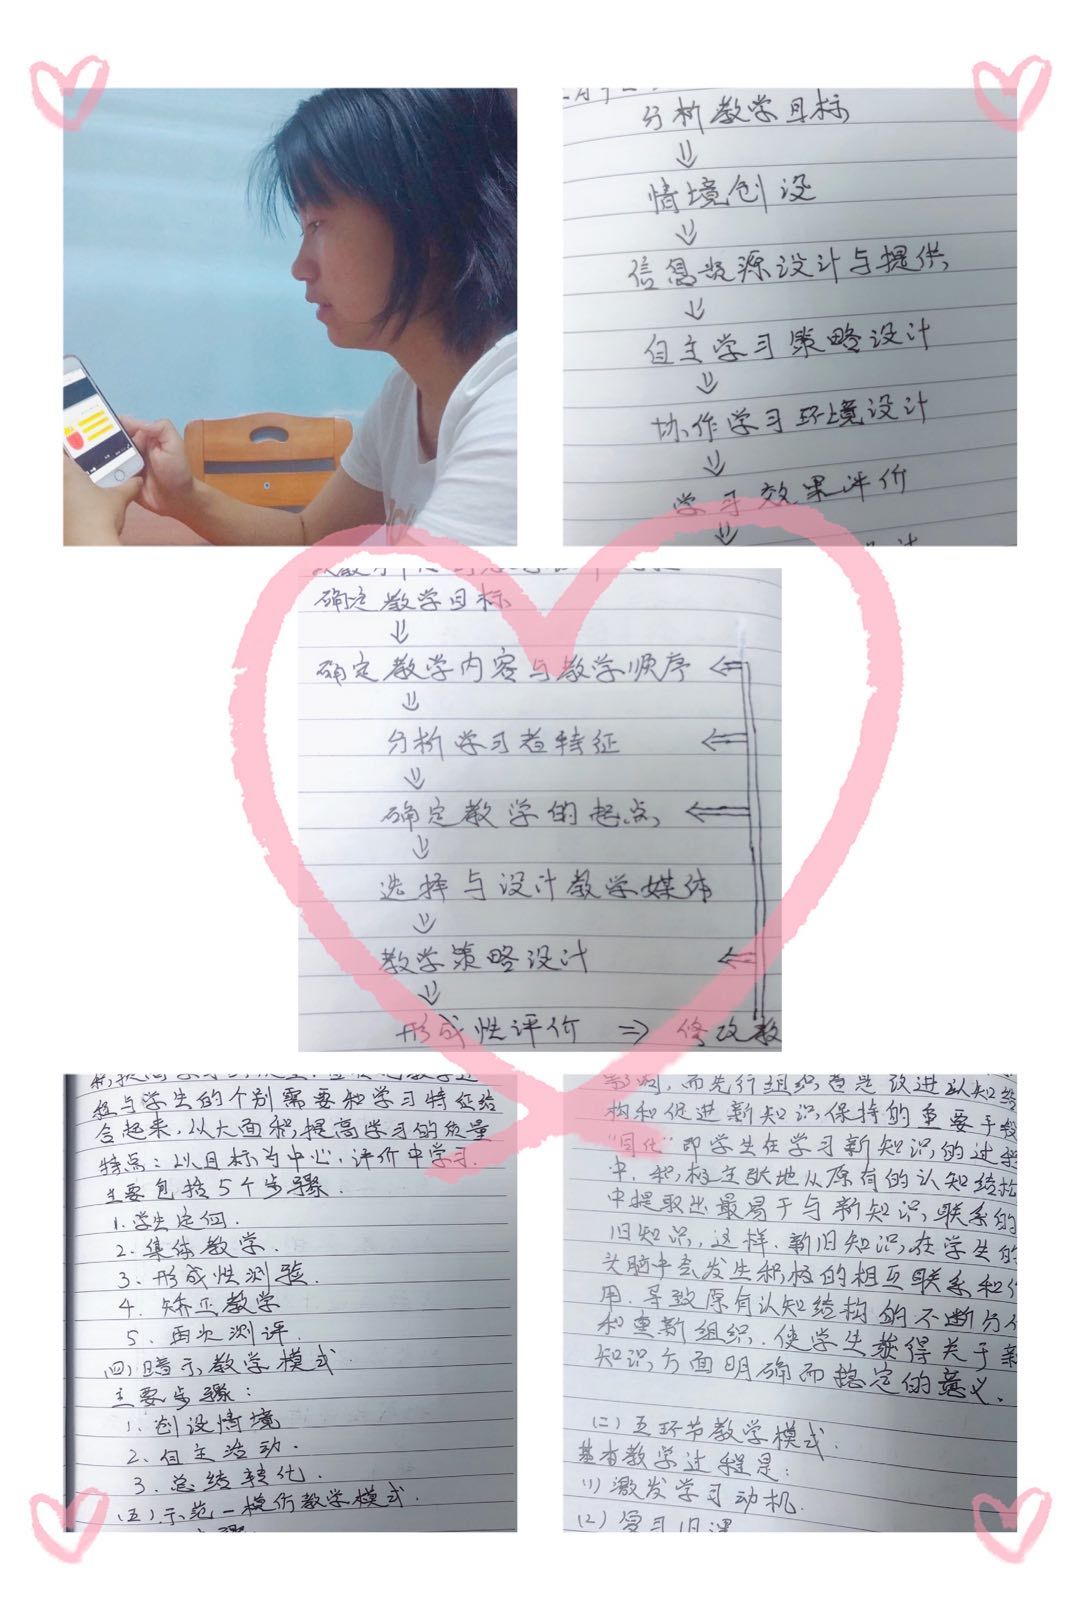 分析教学目标
情境创设
信息资源设计与提供
自主学习策略设计
协作学习环境设计
学习效果评价
确定教学目标
确定教学内容与教学顺序
分析学习者特征
确定教学的起点
选择与设计教学媒体
教学策略设计
形成性评价 ⇒ 修改教
程与学生的个别需要和学习特征结
合起来,从大面积提高学习的质量
特点:以目标为中心,评价中学习.
主要包括5个步骤.
1.学生定向.
2.集体教学.
3.形成性测验.
4.矫正教学
5.再次测评.
(四)暗示教学模式.
主要步骤:
1.创设情境
2.自主活动.
3.总结转化.
(五)示范一模仿教学模式.
而先行组织者是改进认知结
构和促进新知识保持的重要手段
“同化”即学生在学习新知识的过程
中,积极主动地从原有的认知结构
中提取出最易于与新知识联系的
旧知识,这样,新旧知识在学生的
头脑中会发生积极的相互联系和作
用.导致原有认知结构的不断分化
和重新组织.使学生获得关于新
知识方面明确而稳定的意义.
(二)五环节教学模式.
基本教学过程是:
(1)激发学习动机.
(2)复习旧课